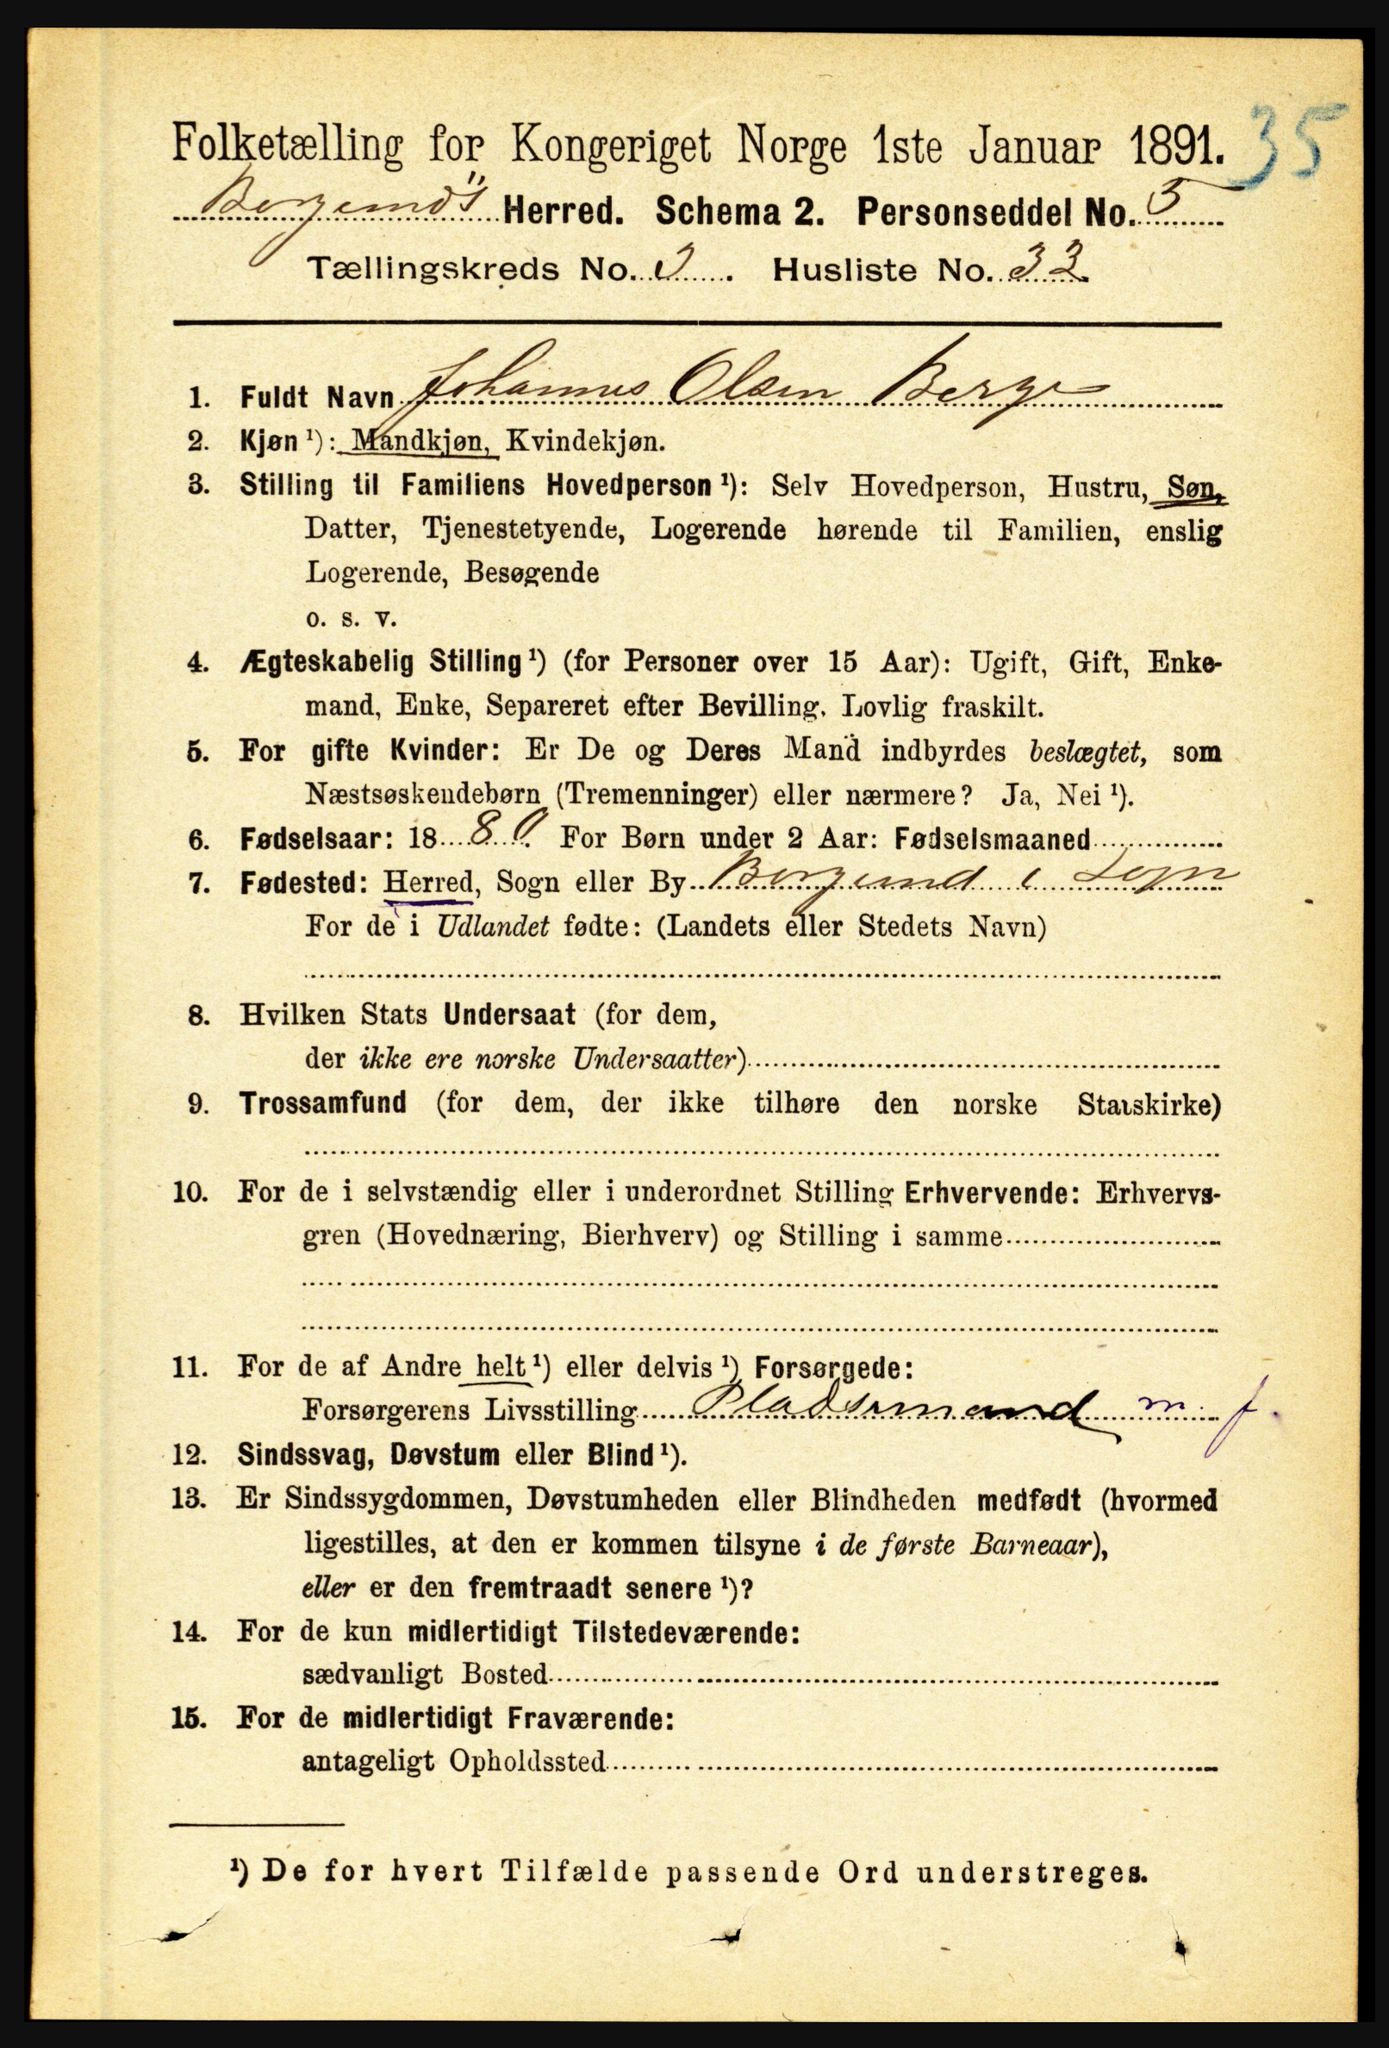 Folketælling for Kongeriget Norge 1ste Januar 1891. 35
Borgund's Herred. Schema 2. Personseddel No. 5
Tællingskreds No. 3. Husliste No. 33
1. Fuldt Navn Johannes Olsen Berge
2. Kjøn ¹): Mandkjøn, Kvindekjøn.
3. Stilling til Familiens Hovedperson ¹): Selv Hovedperson, Hustru, Søn,
Datter, Tjenestetyende, Logerende hørende til Familien, enslig
Logerende, Besøgende
o. s. v.
4. Ægteskabelig Stilling ¹) (for Personer over 15 Aar): Ugift, Gift, Enke-
mand, Enke, Separeret efter Bevilling. Lovlig fraskilt.
5. For gifte Kvinder: Er De og Deres Mand indbyrdes beslægtet, som
Næstsøskendebørn (Tremenninger) eller nærmere? Ja, Nei ¹).
6. Fødselsaar: 1880. For Børn under 2 Aar: Fødselsmaaned
7. Fødested: Herred, Sogn eller By Borgund i Sogn
For de i Udlandet fødte: (Landets eller Stedets Navn)
8. Hvilken Stats Undersaat (for dem,
der ikke ere norske Undersaatter)
9. Trossamfund (for dem, der ikke tilhøre den norske Statskirke)
10. For de i selvstændig eller i underordnet Stilling Erhvervende: Erhvervs-
gren (Hovednæring, Bierhverv) og Stilling i samme
11. For de af Andre helt ¹) eller delvis ¹) Forsørgede:
Forsørgerens Livsstilling Pladsemand m. f.
12. Sindssvag, Døvstum eller Blind ¹).
13. Er Sindssygdommen, Døvstumheden eller Blindheden medfødt (hvormed
ligestilles, at den er kommen tilsyne i de første Barneaar),
eller er den fremtraadt senere ¹)?
14. For de kun midlertidigt Tilstedeværende:
sædvanligt Bosted
15. For de midlertidigt Fraværende:
antageligt Opholdssted
¹) De for hvert Tilfælde passende Ord understreges.